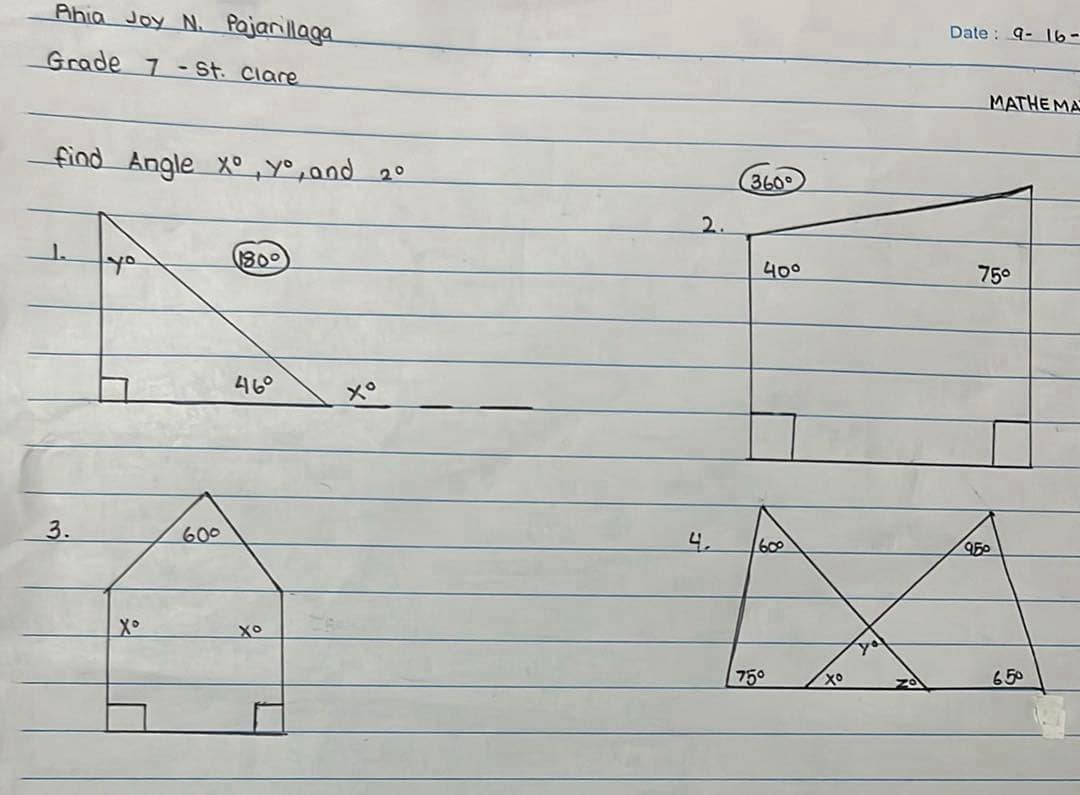 Ahia Joy N. Pajarillaga
Date : 9-16-
Grade 7 - St. Clare
MATHEMA
find Angle x°, y°, and z°
360°
1.
y°
180°
46°
x°
2.
40°
75°
3.
60°
x°
x°
4.
60°
95°
y°
75°
x°
z°
65°